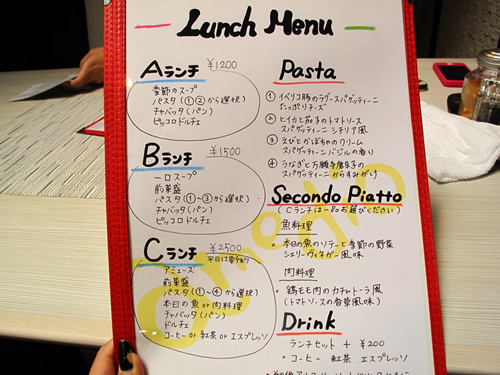 Lunch Menu
Aランチ ¥1200
季節のスープ
パスタ(①②から選択)
チャバッタ(パン)
ピッコロドルチェ
Bランチ ¥1500
一口スープ
前菜盛
パスタ(①~③から選択)
チャバッタ(パン)
ピッコロドルチェ
Cランチ ¥2500
平日は要予約
アミューズ
前菜盛
パスタ(①~④から選択)
本日の魚 or 肉料理
チャバッタ(パン)
ドルチェ
コーヒー or 紅茶 or エスプレッソ
Pasta
① イベリコ豚のラグースパゲッティーニ
たっぷりチーズ
② ヒイカと茄子のトマトソース
スパゲッティーニ シチリア風
③ えびとかぼちゃのクリーム
スパゲッティーニ バジルの香り
④ うなぎと万願寺唐辛子の
スパゲッティーニ からすみがけ
Secondo Piatto
(Cランチは一品お選びください)
魚料理
・本日の魚のソテーと季節の野菜
シェリーヴィネガー風味
肉料理
・鶏モモ肉のカチャトーラ風
(トマトソースの香草風味)
Drink
ランチセット + ¥200
・コーヒー．紅茶．エスプレッソ